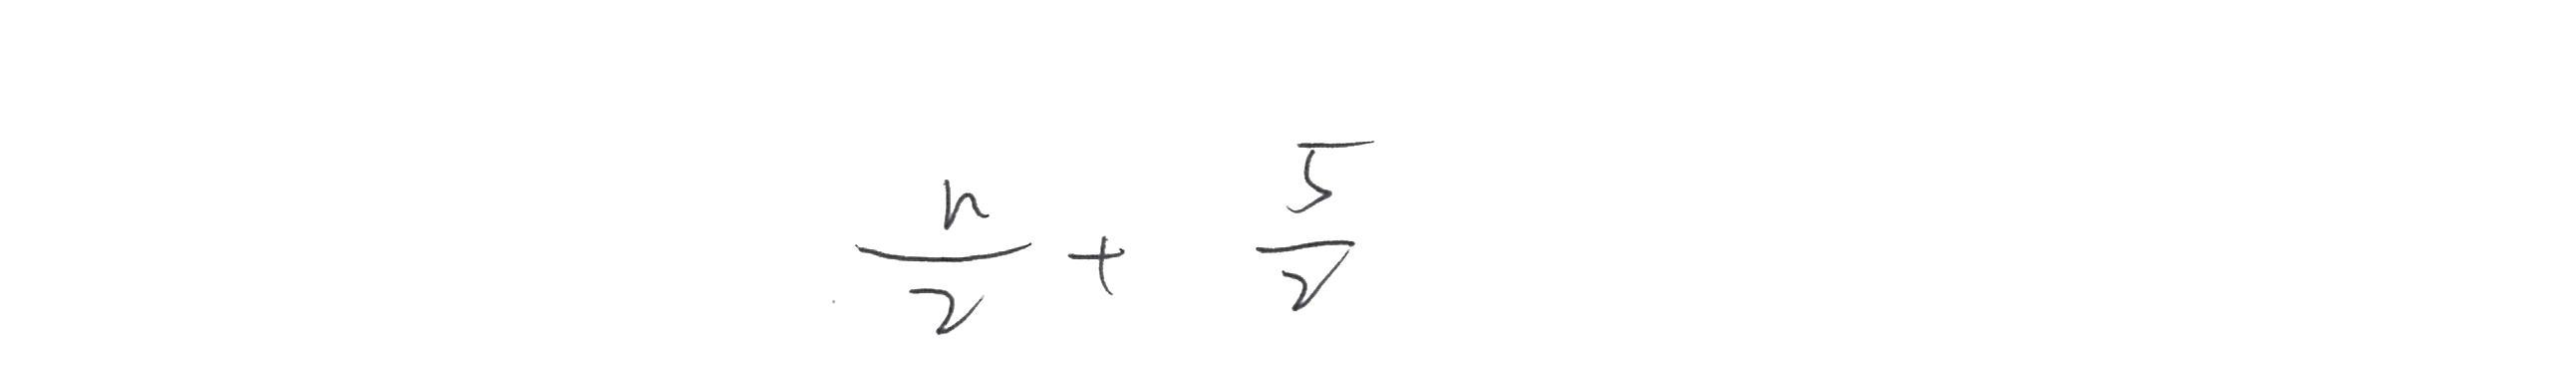 \frac{n}{2} + \frac{5}{2}